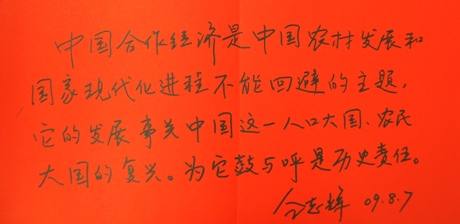 中国合作经济是中国农村发展和
国家现代化进程不能回避的主题，
它的发展事关中国这一人口大国、农民
大国的复兴。为它鼓与呼是历史责任。
09.8.7